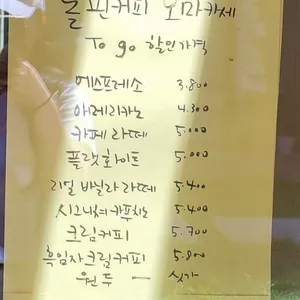 핀커피 오마카세
To go 할인가격
에스프레소 3.800
아메리카노 4.300
카페라떼 5.000
플랫화이트 5.000
리얼 바닐라라떼 5.400
시그니쳐 카푸치노 5.400
크림커피 5.700
흑임자크림커피 5.800
원두 — 싯가